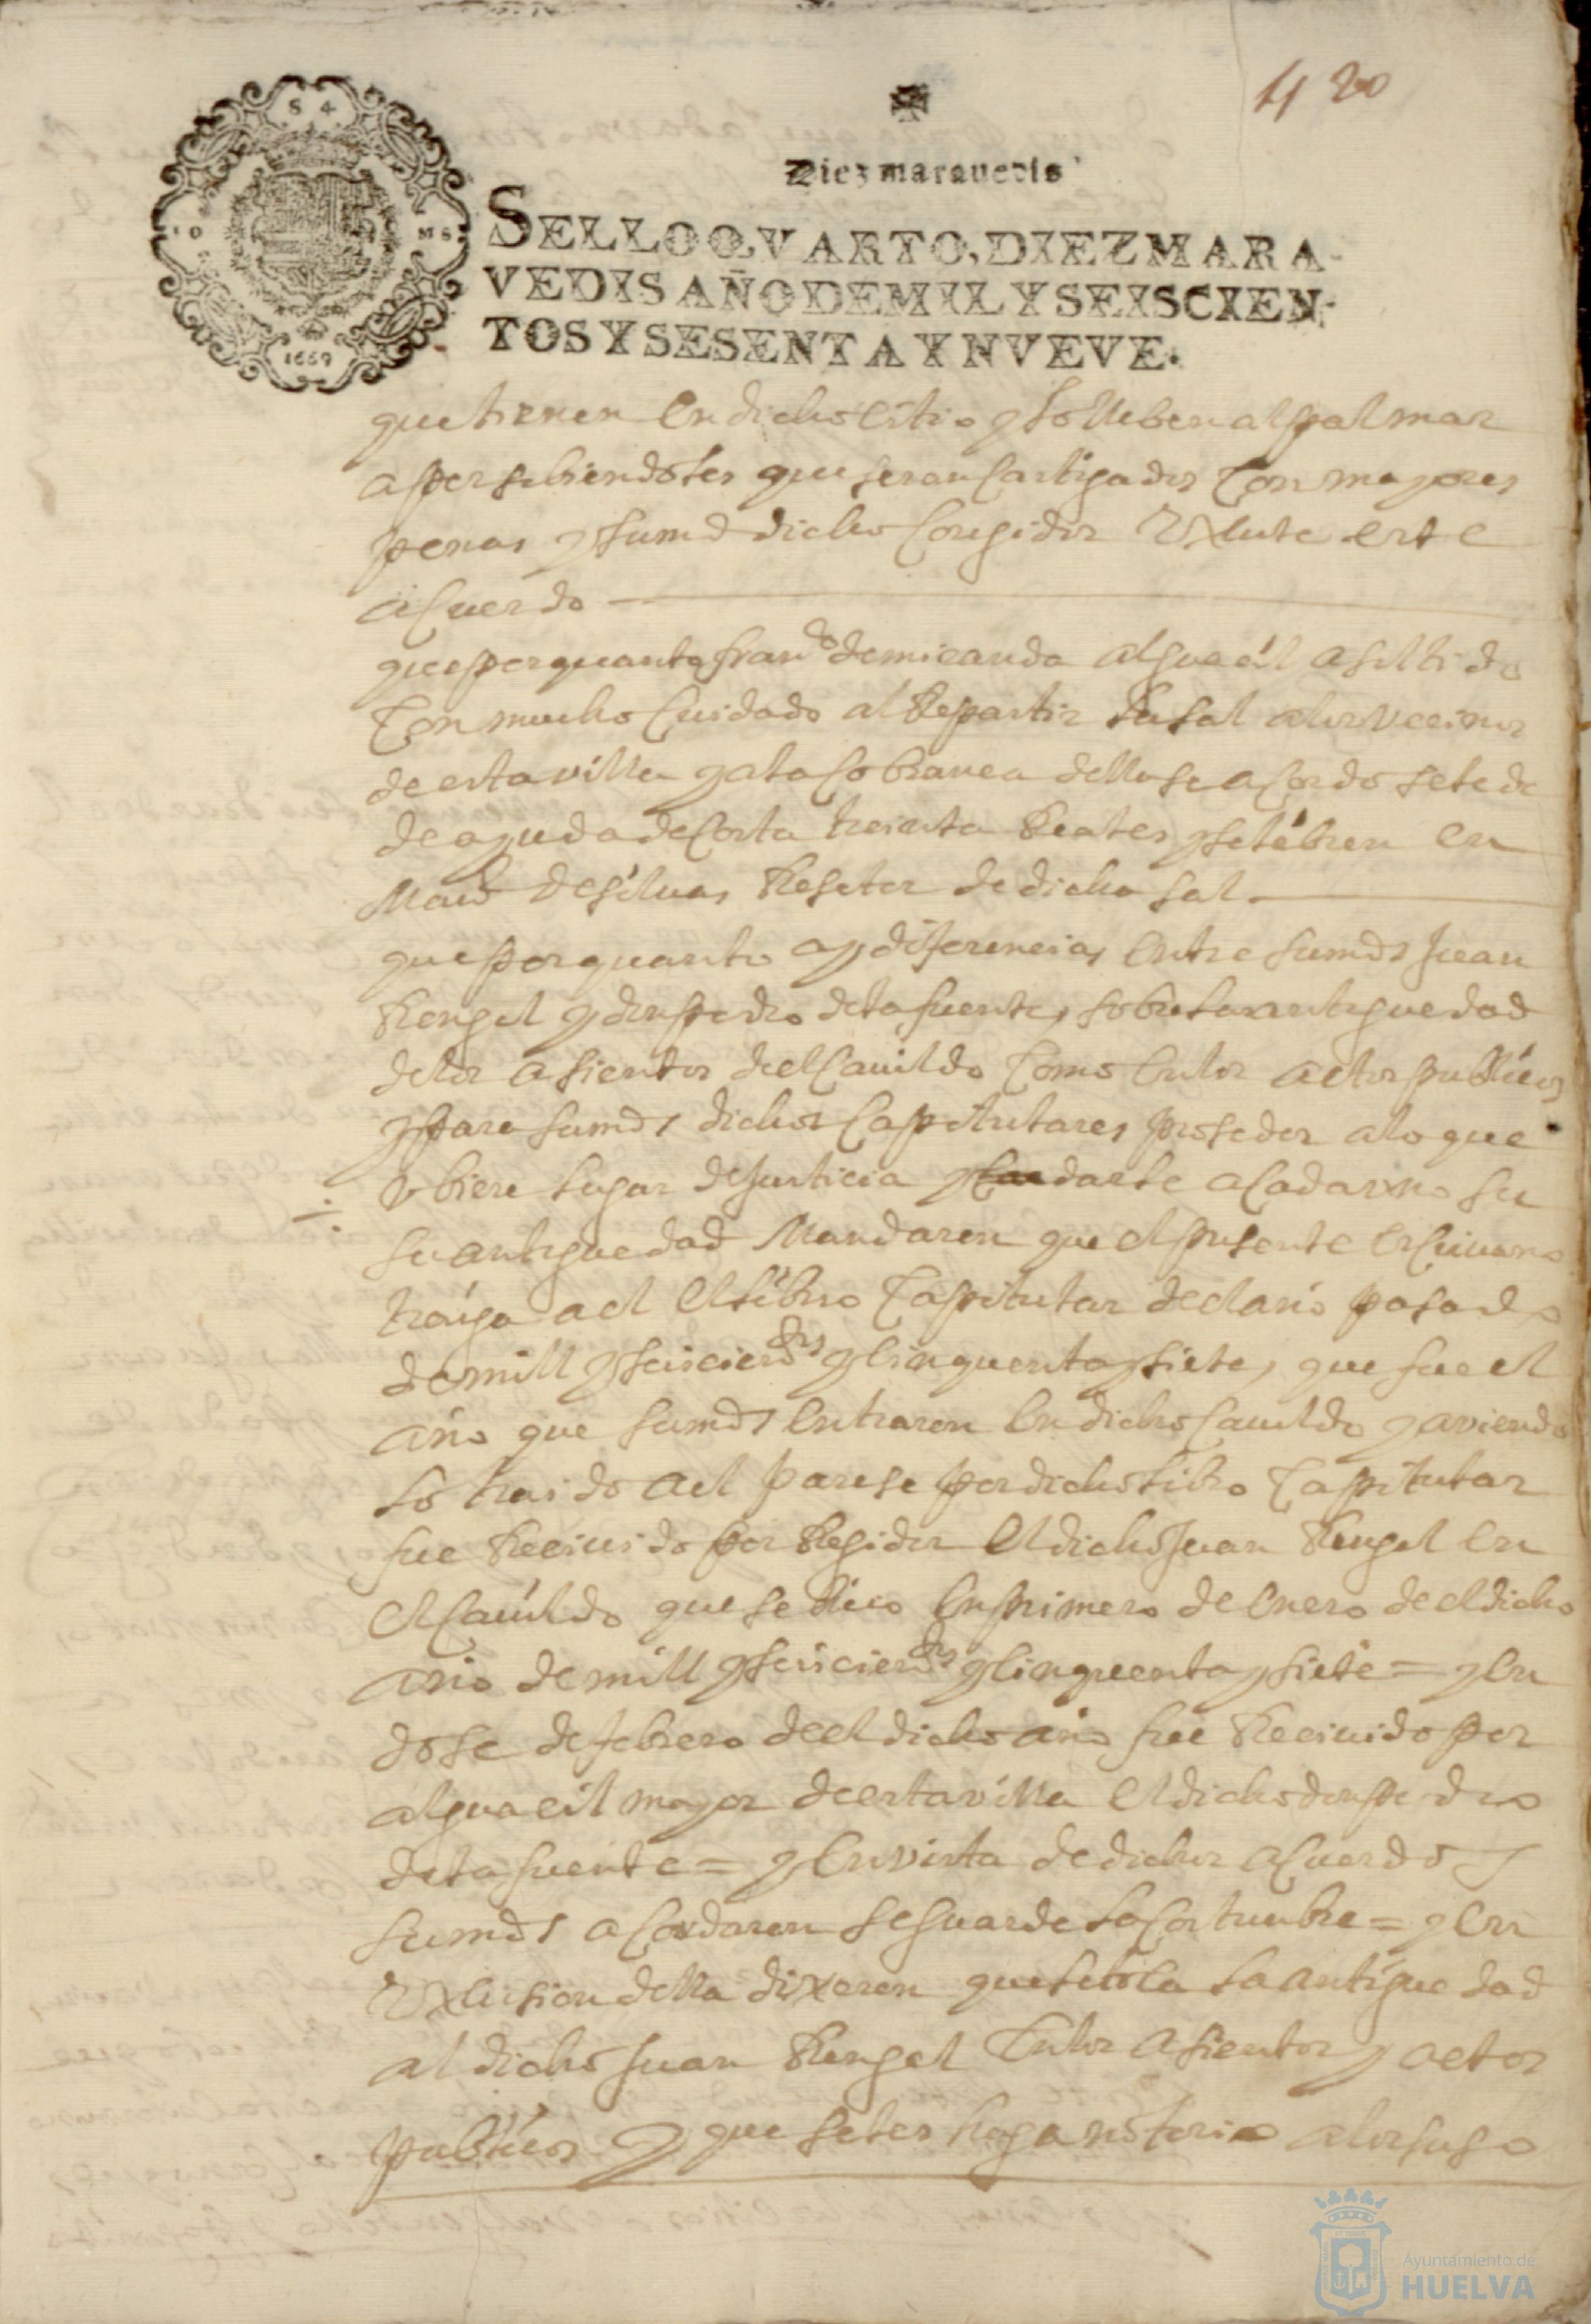 420
Diez maravedis
SELLO QVARTO, DIEZ MARA-
VEDIS AÑO DE MIL Y SEISCIEN-
TOS Y SESENTA Y NVEVE.
S 4
1 0
M S
1669
que tienen en dicho citio y lo lleben al palmar
apersibiendoles que seran Castigados Con mayores
penas y su md dicho Coregidor exsecute este
aCuerdo
que por quanto franco de miranda alguacil a sistido
Con mucho Cuidado al Repartir la sal a los vecinos
de esta villa y a la Cobranca della se aCordo se le de
de ayuda de Costa treinta Reales y se libren en
Manl de silva Resetor de dicha sal
que por quanto ay diferencias entre sus mds Juan
Rengel y don pedro de la fuente, sobre la antiguedad
de los asientos del Cavildo Como en los actos publicos
y para sus mds dichos Capitulares proseder a lo que
ubiere lugar de Justicia y darle a Cada uno su
su antiguedad Mandaron que el presente escrivano
traiga a el el libro Capitular del año pasado
de mill y seiscientos y cinquenta y siete, que fue el
año que sus mds entraron en dicho Cavildo y aviendo
lo traido a el parese por dicho libro Capitular
fue Recivido por Regidor el dicho Juan Rengel en
el Cavildo que se hico en primero de enero de el dicho
año de mill y seiscientos y cinquenta y siete = y en
dose de febrero de el dicho año fue Recivido por
alguacil mayor de esta villa el dicho don pedro
de la fuente = y en vista de dichos aCuerdos
sus mds aCordaron se guarde la Costumbre = y en
exsecusion della dixeron que se la antiguedad
al dicho Juan Rengel en los asientos y actos
publicos y que se les haga notorio a los suso
Ayuntamiento de
HUELVA